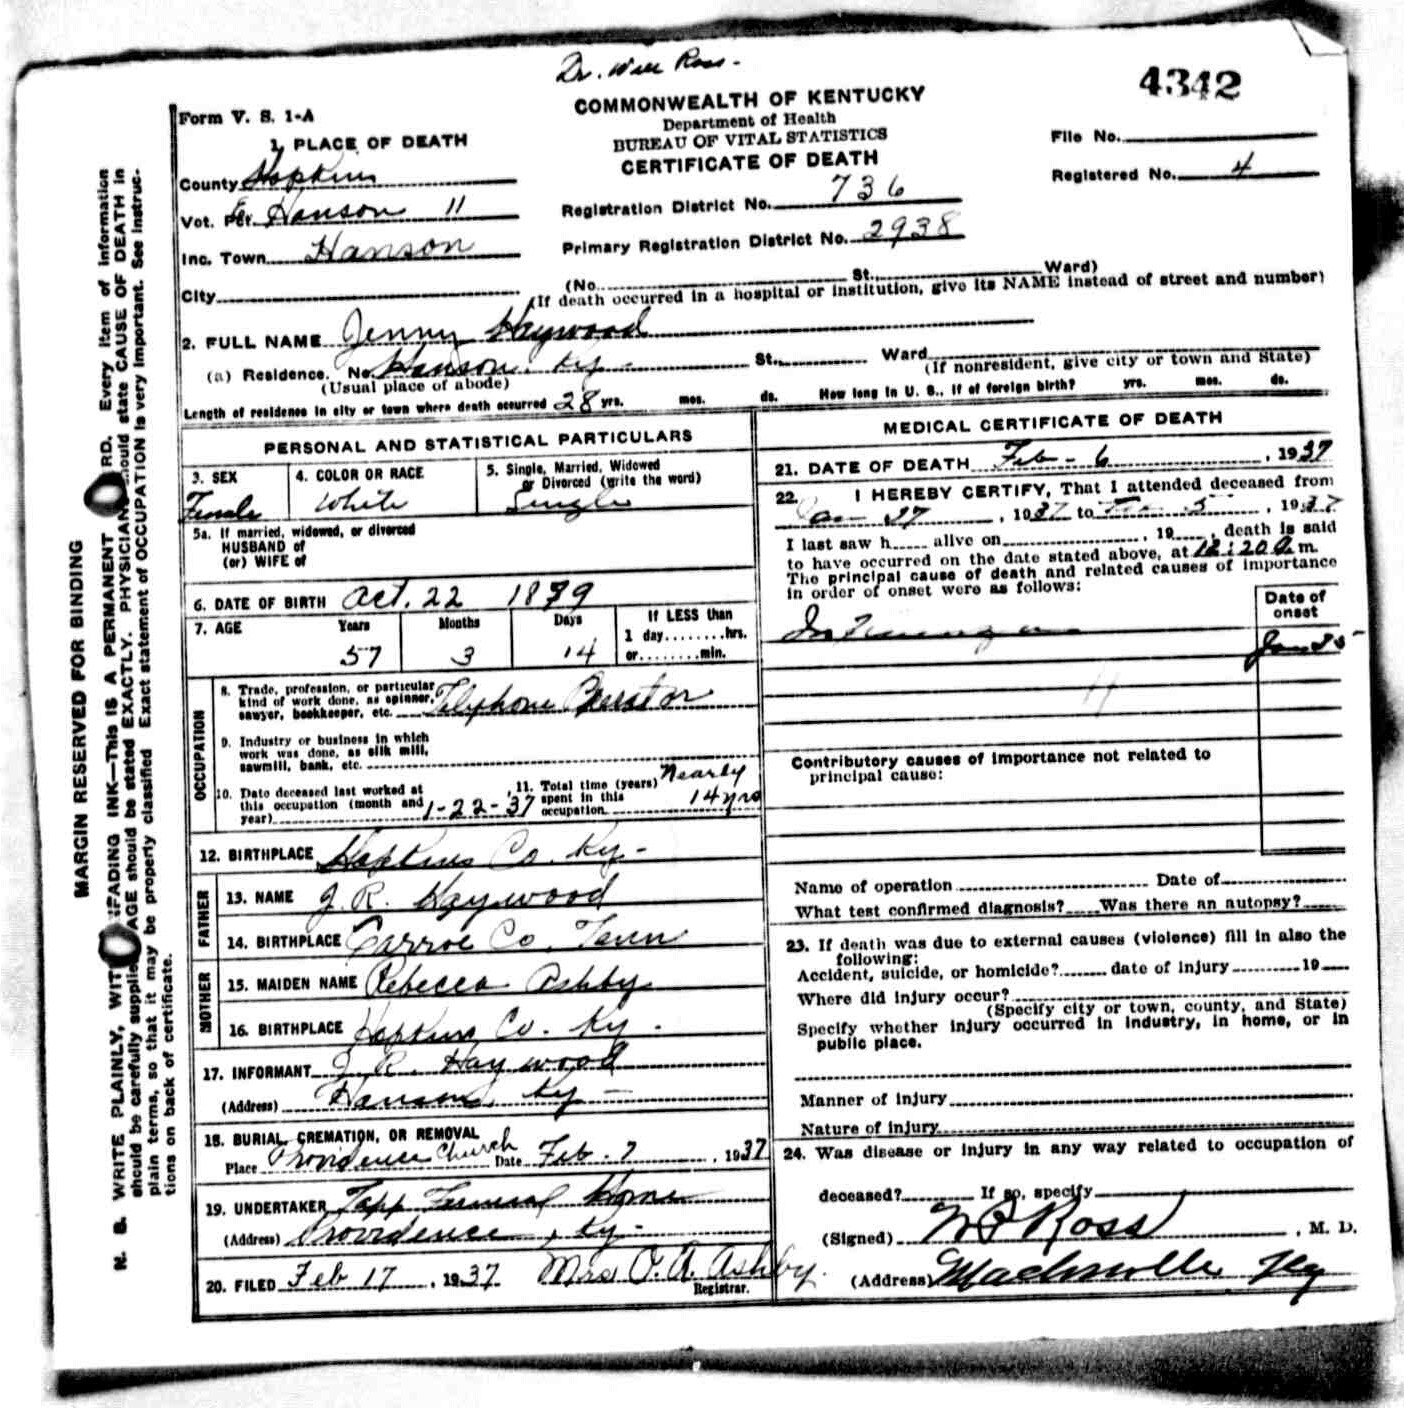 Dr. Will Ross-
4342
Form V. S. 1-A
COMMONWEALTH OF KENTUCKY
Department of Health
BUREAU OF VITAL STATISTICS
CERTIFICATE OF DEATH
File No.
Registered No. 4
1. PLACE OF DEATH
County Hopkins
Vot. Pct. E. Hanson 11
Inc. Town Hanson
City
Registration District No. 736
Primary Registration District No. 2938
(No. St. Ward)
(If death occurred in a hospital or institution, give its NAME instead of street and number)
2. FULL NAME Jenny Haywood
(a) Residence. No. Hanson, Ky- St. Ward
(Usual place of abode)
(If nonresident, give city or town and State)
Length of residence in city or town where death occurred 28 yrs. mos. ds. How long in U. S., if of foreign birth? yrs. mos. ds.
PERSONAL AND STATISTICAL PARTICULARS
3. SEX
Female
4. COLOR OR RACE
White
5. Single, Married, Widowed
or Divorced (write the word)
Single
5a. If married, widowed, or divorced
HUSBAND of
(or) WIFE of
6. DATE OF BIRTH Oct. 22 1879
7. AGE Years Months Days
57 3 14
If LESS than
1 day........hrs.
or........min.
OCCUPATION
8. Trade, profession, or particular
kind of work done, as spinner,
sawyer, bookkeeper, etc. Telephone Operator
9. Industry or business in which
work was done, as silk mill,
sawmill, bank, etc.
10. Date deceased last worked at
this occupation (month and
year) 1-22-37
11. Total time (years)
spent in this
occupation Nearly
14 yrs
12. BIRTHPLACE Hopkins Co. Ky-
FATHER
13. NAME J. R. Haywood
14. BIRTHPLACE Carroe Co. Tenn
MOTHER
15. MAIDEN NAME Rebecca Ashby
16. BIRTHPLACE Hopkins Co. Ky.
17. INFORMANT J. R. Haywood
(Address) Hanson, Ky-
18. BURIAL, CREMATION, OR REMOVAL
Place Providence Church Date Feb. 7, 1937
19. UNDERTAKER Tapp Funeral Home
(Address) Providence, Ky-
20. FILED Feb 17, 1937 Mrs O. A. Ashby.
Registrar.
MEDICAL CERTIFICATE OF DEATH
21. DATE OF DEATH Feb - 6, 1937
22. I HEREBY CERTIFY, That I attended deceased from
Jan 27, 1937 to Feb 5, 1937
I last saw h...... alive on, 19......, death is said
to have occurred on the date stated above, at 12:20 a. m.
The principal cause of death and related causes of importance
in order of onset were as follows:
Date of
onset
Influenza
Jan 25
Contributory causes of importance not related to
principal cause:
Name of operation Date of
What test confirmed diagnosis? Was there an autopsy?
23. If death was due to external causes (violence) fill in also the
following:
Accident, suicide, or homicide? date of injury 19
Where did injury occur?
(Specify city or town, county, and State)
Specify whether injury occurred in industry, in home, or in
public place.
Manner of injury
Nature of injury
24. Was disease or injury in any way related to occupation of
deceased? If so, specify
(Signed) W P Ross, M. D.
(Address) Madisonville Ky
MARGIN RESERVED FOR BINDING
N. B. WRITE PLAINLY, WITH UNFADING INK—THIS IS A PERMANENT RECORD. Every item of information
should be carefully supplied. AGE should be stated EXACTLY. PHYSICIANS should state CAUSE OF DEATH in
plain terms, so that it may be properly classified. Exact statement of OCCUPATION is very important. See instruc-
tions on back of certificate.